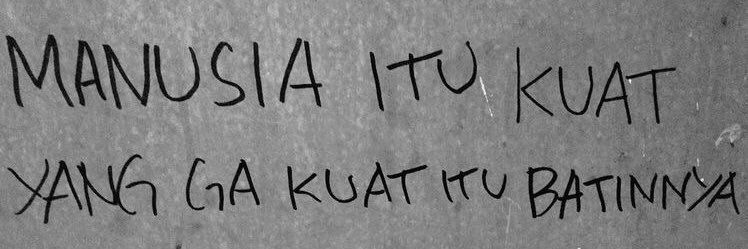 MANUSIA ITU KUAT
YANG GA KUAT ITU BATINNYA